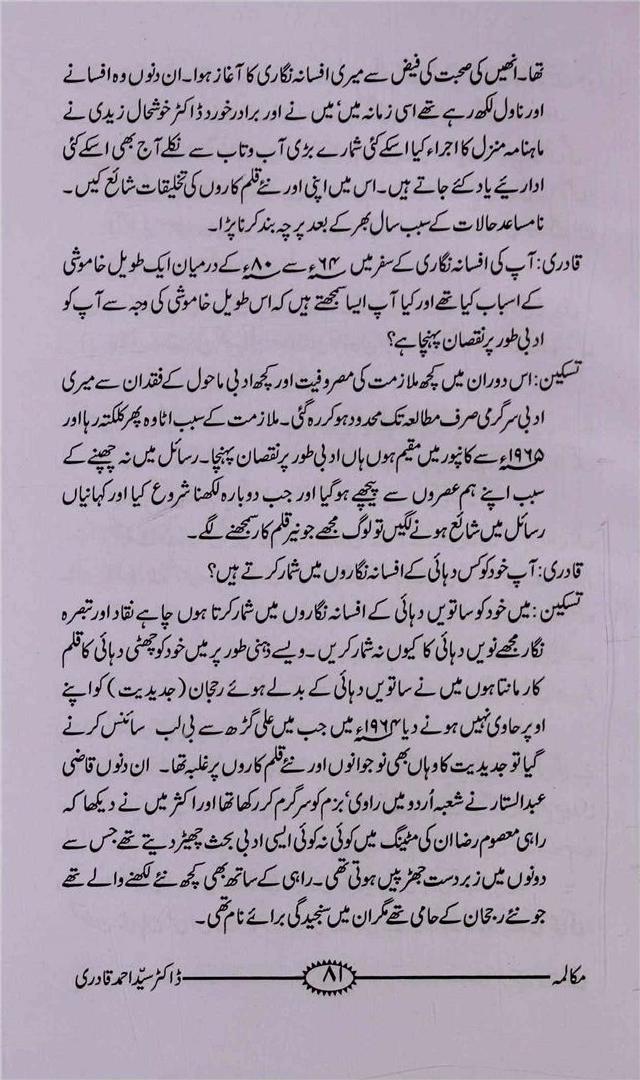 تھا۔ انھیں کی صحبت کی فیض سے میری افسانہ نگاری کا آغاز ہوا۔ ان دنوں وہ افسانے
اور ناول لکھ رہے تھے اسی زمانہ میں‘ میں نے اور برادر خورد ڈاکٹر خوشحال زیدی نے
ماہنامہ منزل کا اجراء کیا اسکے کئی شمارے بڑی آب و تاب سے نکلے آج بھی اسکے کئی
ادارئیے یاد کئے جاتے ہیں۔ اس میں اپنی اور نئے قلم کاروں کی تخلیقات شائع کیں۔
نامساعد حالات کے سبب سال بھر کے بعد پرچہ بند کرنا پڑا۔
قادری: آپ کی افسانہ نگاری کے سفر میں ۶۴ء سے ۸۰ء کے درمیان ایک طویل خاموشی
کے اسباب کیا تھے اور کیا آپ ایسا سمجھتے ہیں کہ اس طویل خاموشی کی وجہ سے آپ کو
ادبی طور پر نقصان پہنچا ہے؟
تسکین: اس دوران میں کچھ ملازمت کی مصروفیت اور کچھ ادبی ماحول کے فقدان سے میری
ادبی سرگرمی صرف مطالعہ تک محدود ہو کر رہ گئی۔ ملازمت کے سبب اٹاوہ پھر کلکتہ رہا اور
۱۹۶۵ء سے کانپور میں مقیم ہوں ہاں ادبی طور پر نقصان پہنچا۔ رسائل میں نہ چھپنے کے
سبب اپنے ہم عصروں سے پیچھے ہو گیا اور جب دوبارہ لکھنا شروع کیا اور کہانیاں
رسائل میں شائع ہونے لگیں تو لوگ مجھے جونیر قلم کار سمجھنے لگے۔
قادری: آپ خود کو کس دہائی کے افسانہ نگاروں میں شمار کرتے ہیں؟
تسکین: میں خود کو ساتویں دہائی کے افسانہ نگاروں میں شمار کرتا ہوں چاہے نقاد اور تبصرہ
نگار مجھے نویں دہائی کا کیوں نہ شمار کریں۔ ویسے ذہنی طور پر میں خود کو چھٹی دہائی کا قلم
کار مانتا ہوں میں نے ساتویں دہائی کے بدلے ہوئے رجحان (جدیدیت) کو اپنے
اوپر حاوی نہیں ہونے دیا ۱۹۶۴ء میں جب میں علی گڑھ سے بی لب سائنس کرنے
گیا تو جدیدیت کا وہاں بھی نوجوانوں اور نئے قلم کاروں پر غلبہ تھا۔ ان دنوں قاضی
عبدالستار نے شعبہ اُردو میں راوی‘ بزم کو سرگرم کر رکھا تھا اور اکثر میں نے دیکھا کہ
راہی معصوم رضا ان کی مٹینگ میں کوئی نہ کوئی ایسی ادبی بحث چھیڑ دیتے تھے جس سے
دونوں میں زبردست جھڑپیں ہوتی تھی۔ راہی کے ساتھ بھی کچھ نئے لکھنے والے تھے
جو نئے رجحان کے حامی تھے مگر ان میں سنجیدگی برائے نام تھی۔
مکالمہ ۸۱ ڈاکٹر سیّد احمد قادری